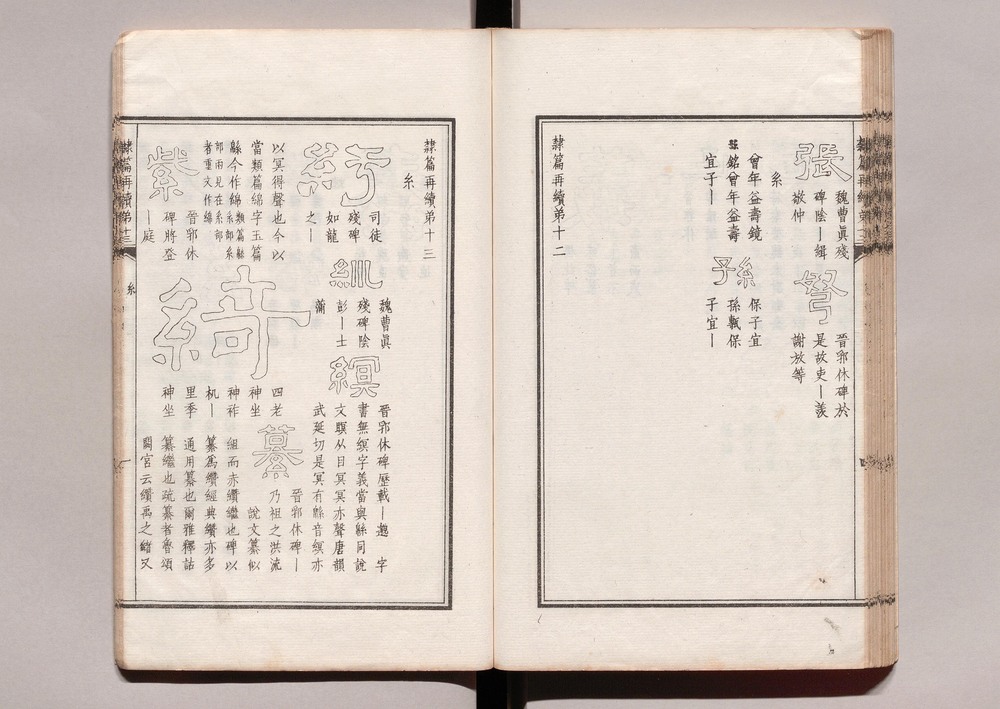 張
魏曹真殘
碑陰丨緝
敬仲
弩
晉郛休碑於
是故吏丨羨
謝放等
系
孫
曾年益壽鏡
銘曾年益壽
宜子丨
保子宜
孫甎保
子宜丨
隸篇再續弟十二
隸篇再續弟十三
糸
司徒
殘碑
如龍
之丨
魏曹真
殘碑陰
彭丨士
蒲
縸
晉郛休碑歷載丨邈 字
書無縸字義當與緜同說
文瞑从目冥冥亦聲唐韻
武延切是冥有緜音縸亦
以冥得聲也今以
當類篇綿字玉篇
緜今作綿類篇緜糸部系
部兩見在系部
者重文作綿
綺
四老
神坐
神祚
机丨
里季
神坐
纂
晉郛休碑丨
乃祖之洪流
說文纂似
組而赤纘繼也碑以
纂為纘經典纘亦多
通用纂也爾雅釋詁
纂繼也疏纂者魯頌
閟宮云纘禹之緒又
紫
晉郛休
碑將登
丨庭
隸篇再續弟十三
糸